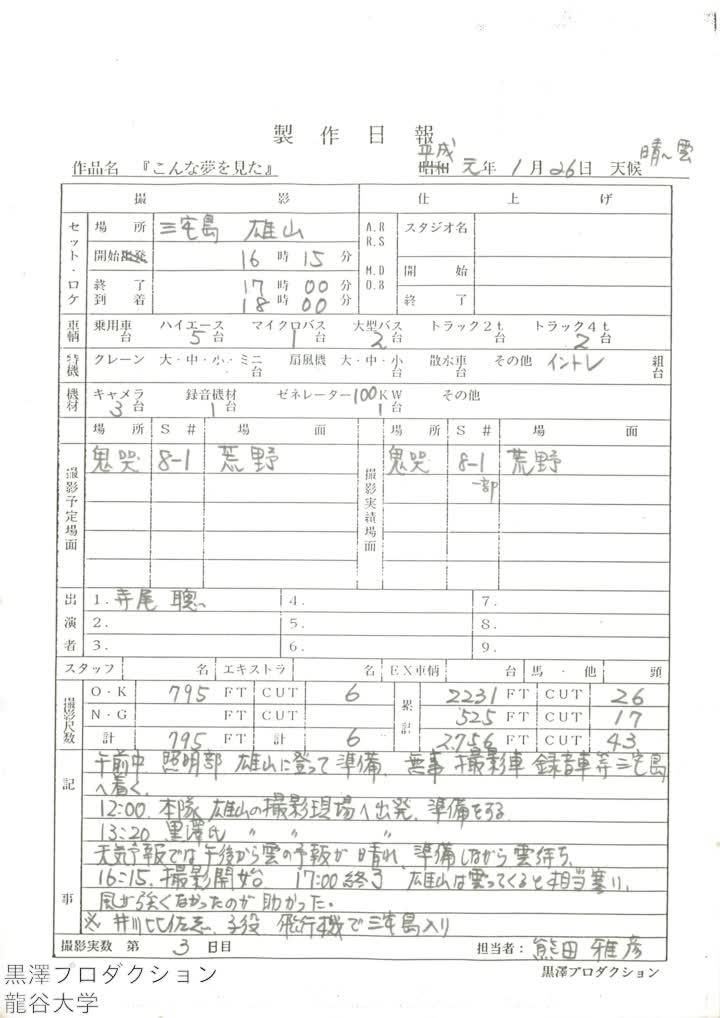 製作日報
作品名 『こんな夢を見た』 昭和 平成 元年 1月26日 天候 晴れ 雲
撮影 仕上げ
セット・ロケ 場所 三宅島 雄山 A.R R.S スタジオ名
開始 16時15分 M.D O.B 開始
終了 17 00分
到着 18時00分 終了
車輌 乗用車 台 ハイエース 5台 マイクロバス 1台 大型バス 2台 トラック2t 台 トラック4t 2台
特機 クレーン 大・中・小・ミニ 台 扇風機 大・中・小 台 散水車 台 その他 イントレ 組 台
機材 キャメラ 3台 録音機材 1台 ゼネレーター100KW 1台 その他
場所 S# 場面 場所 S# 場面
撮影予定場面 鬼哭 8-1 荒野 撮影実績場面 鬼哭 8-1 荒野
一部
出演者 1. 寺尾 聰 4. 7.
2. 5. 8.
3. 6. 9.
スタッフ 名 エキストラ 名 EX車輌 台 馬・他 頭
撮影尺数 O・K 795 FT CUT 6 累計 2231 FT CUT 26
N・G FT CUT 525 FT CUT 17
計 795 FT 計 6 2756 FT CUT 43
記事
午前中 照明部 雄山に登って準備、無事 撮影車 録音車等三宅島
へ着く。
12:00. 本隊 雄山の撮影現場へ出発、準備をする
13:20 黒澤氏 〃 〃 〃
天気予報では午後から雲の予報が晴れ、準備しながら雲待ち、
16:15. 撮影開始 17:00終了 雄山は雲ってくると相当寒い。
風が強くなかったのが助かった。
※ 井川比佐志、子役 飛行機で三宅島入り
撮影実数 第 3 日目 担当者: 熊田 雅彦
黒澤プロダクション
黒澤プロダクション
龍谷大学